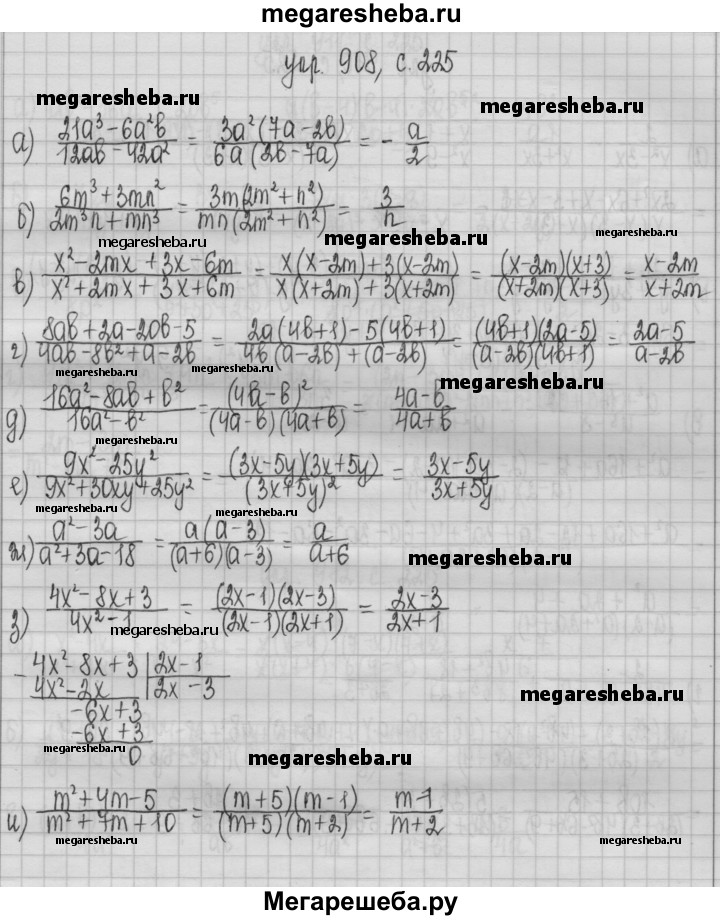 megaresheba.ru
упр. 908, с. 225
megaresheba.ru megaresheba.ru
а) (21a³ - 6a²b)/(12ab - 42a²) = 3a²(7a - 2b)/6a(2b - 7a) = - a/2
б) (6m³ + 3mn²)/(2m³n + mn³) = 3m(2m² + n²)/mn(2m² + n²) = 3/n
megaresheba.ru megaresheba.ru
в) (x² - 2mx + 3x - 6m)/(x² + 2mx + 3x + 6m) = (x(x - 2m) + 3(x - 2m))/(x(x + 2m) + 3(x + 2m)) = (x - 2m)(x + 3)/(x + 2m)(x + 3) = (x - 2m)/(x + 2m)
г) (8ab + 2a - 20b - 5)/(4ab - 8b² + a - 2b) = (2a(4b + 1) - 5(4b + 1))/(4b(a - 2b) + (a - 2b)) = (4b + 1)(2a - 5)/(a - 2b)(4b + 1) = (2a - 5)/(a - 2b)
megaresheba.ru megaresheba.ru
megaresheba.ru
д) (16a² - 8ab + b²)/(16a² - b²) = (4a - b)²/(4a - b)(4a + b) = (4a - b)/(4a + b)
megaresheba.ru
е) (9x² - 25y²)/(9x² + 30xy + 25y²) = (3x - 5y)(3x + 5y)/(3x + 5y)² = (3x - 5y)/(3x + 5y)
megaresheba.ru
ж) (a² - 3a)/(a² + 3a - 18) = a(a - 3)/(a + 6)(a - 3) = a/(a + 6)
megaresheba.ru
з) (4x² - 8x + 3)/(4x² - 1) = (2x - 1)(2x - 3)/(2x - 1)(2x + 1) = (2x - 3)/(2x + 1)
megaresheba.ru
- 4x² - 8x + 3 | 2x - 1
4x² - 2x | 2x - 3
megaresheba.ru
-6x + 3
-6x + 3
0
megaresheba.ru
megaresheba.ru
и) (m² + 4m - 5)/(m² + 7m + 10) = (m + 5)(m - 1)/(m + 5)(m + 2) = (m - 1)/(m + 2)
megaresheba.ru megaresheba.ru megaresheba.ru
Мегарешеба.ру